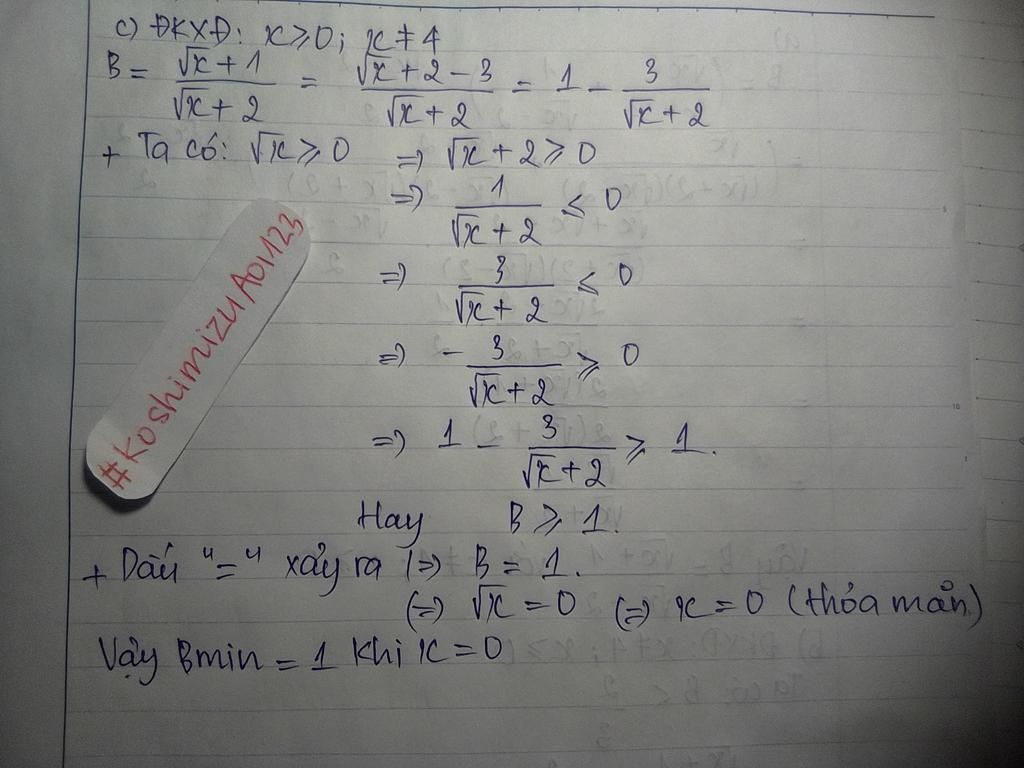 c) ĐKXĐ: x ≥ 0; x ≠ 4
B = (√x + 1)/(√x + 2) = (√x + 2 - 3)/(√x + 2) = 1 - 3/(√x + 2)
+ Ta có: √x ≥ 0 => √x + 2 ≥ 0
=> 1/(√x + 2) ≤ 0
=> 3/(√x + 2) ≤ 0
=> - 3/(√x + 2) ≥ 0
=> 1 - 3/(√x + 2) ≥ 1.
Hay B ≥ 1.
+ Dấu "=" xảy ra (=> B = 1.
(=> √x = 0 (=> x = 0 (thỏa mản)
Vậy Bmin = 1 khi x = 0
#KoshimizuAoi1123